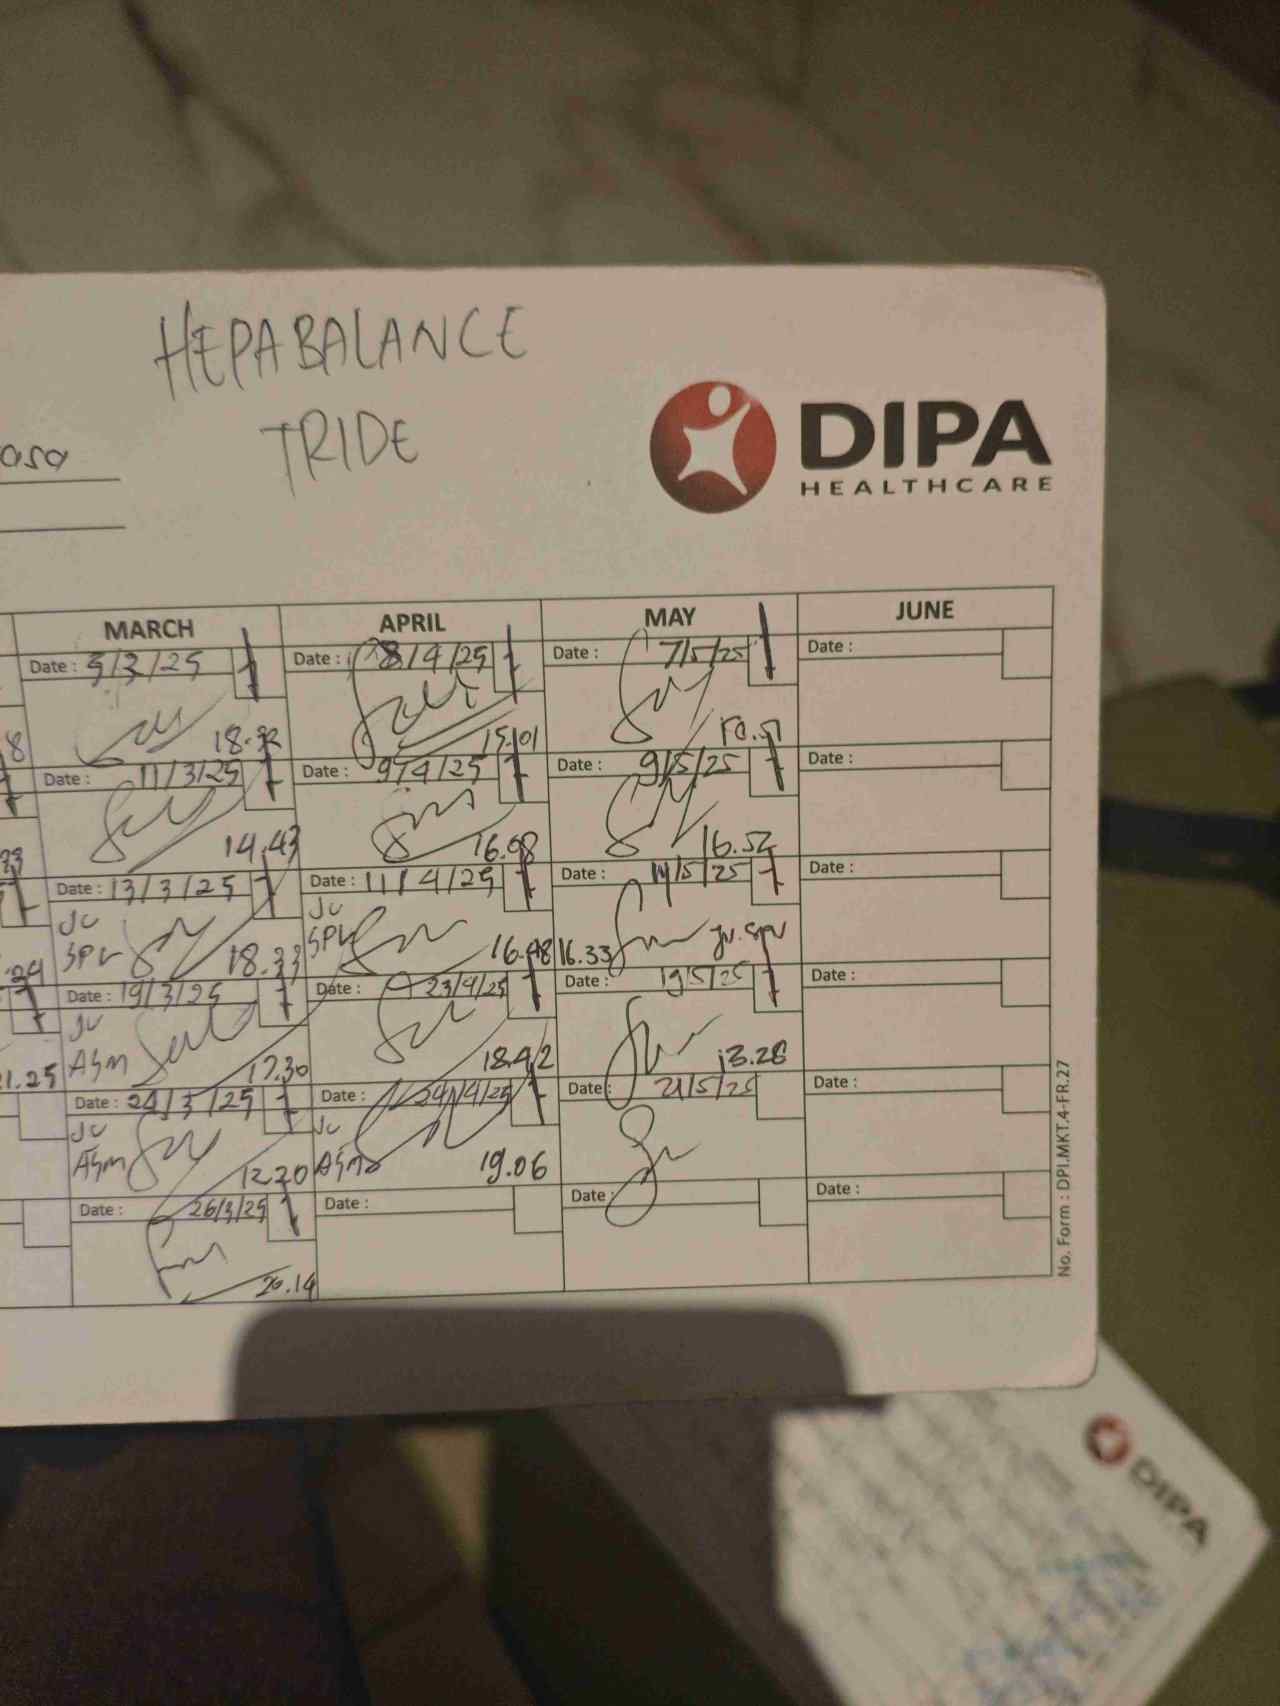 HEPABALANCE
TRIDE
DIPA
HEALTHCARE
MARCH APRIL MAY JUNE
Date : 5/3/25 Date : 8/4/25 Date : 7/5/25 Date :
15.01
Date : 11/3/25 Date : 9/4/25 Date : 9/5/25 Date :
14.43 16.08 16.52
Date : 13/3/25 Date : 11/4/25 Date : 14/5/25 Date :
JV JV
SPV 18.33 SPV 16.48 16.33 JV. SPV
Date : 19/3/25 Date : 23/4/25 Date : 19/5/25 Date :
JV
ASM 17.30 18.42 13.28
Date : 24/3/25 Date : 24/4/25 Date : 21/5/25 Date :
JV JV
ASM 12.20 ASM 19.06
Date : 26/3/25 Date : Date : Date :
20.14
21.25
No. Form : DPI.MKT.4-FR.27
DIPA